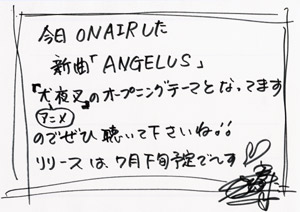 今日 ONAIRした
新曲「ANGELUS」
『犬夜叉』のオープニングテーマとなってます
アニメ
のでぜひ聴いて下さいね!!
リリースは、7月下旬予定でんす